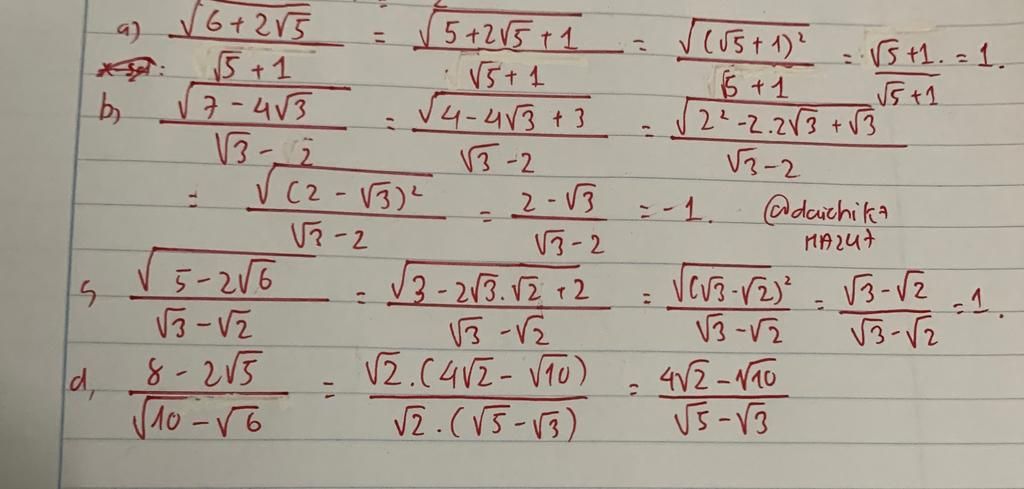 a) \frac{\sqrt{6+2\sqrt{5}}}{\sqrt{5}+1} = \frac{\sqrt{5+2\sqrt{5}+1}}{\sqrt{5}+1} = \frac{\sqrt{(\sqrt{5}+1)^2}}{\sqrt{5}+1} = \frac{\sqrt{5}+1.}{\sqrt{5}+1} = 1.
b, \frac{\sqrt{7-4\sqrt{3}}}{\sqrt{3}-2} = \frac{\sqrt{4-4\sqrt{3}+3}}{\sqrt{3}-2} = \frac{\sqrt{2^2-2.2\sqrt{3}+\sqrt{3}}}{\sqrt{3}-2}
= \frac{\sqrt{(2-\sqrt{3})^2}}{\sqrt{3}-2} = \frac{2-\sqrt{3}}{\sqrt{3}-2} = -1. @daichika
c, \frac{\sqrt{5-2\sqrt{6}}}{\sqrt{3}-\sqrt{2}} = \frac{\sqrt{3-2\sqrt{3}.\sqrt{2}+2}}{\sqrt{3}-\sqrt{2}} = \frac{\sqrt{(\sqrt{3}-\sqrt{2})^2}}{\sqrt{3}-\sqrt{2}} = \frac{\sqrt{3}-\sqrt{2}}{\sqrt{3}-\sqrt{2}} = 1.
d, \frac{8-2\sqrt{5}}{\sqrt{10}-\sqrt{6}} = \frac{\sqrt{2}.(4\sqrt{2}-\sqrt{10})}{\sqrt{2}.(\sqrt{5}-\sqrt{3})} = \frac{4\sqrt{2}-\sqrt{10}}{\sqrt{5}-\sqrt{3}}